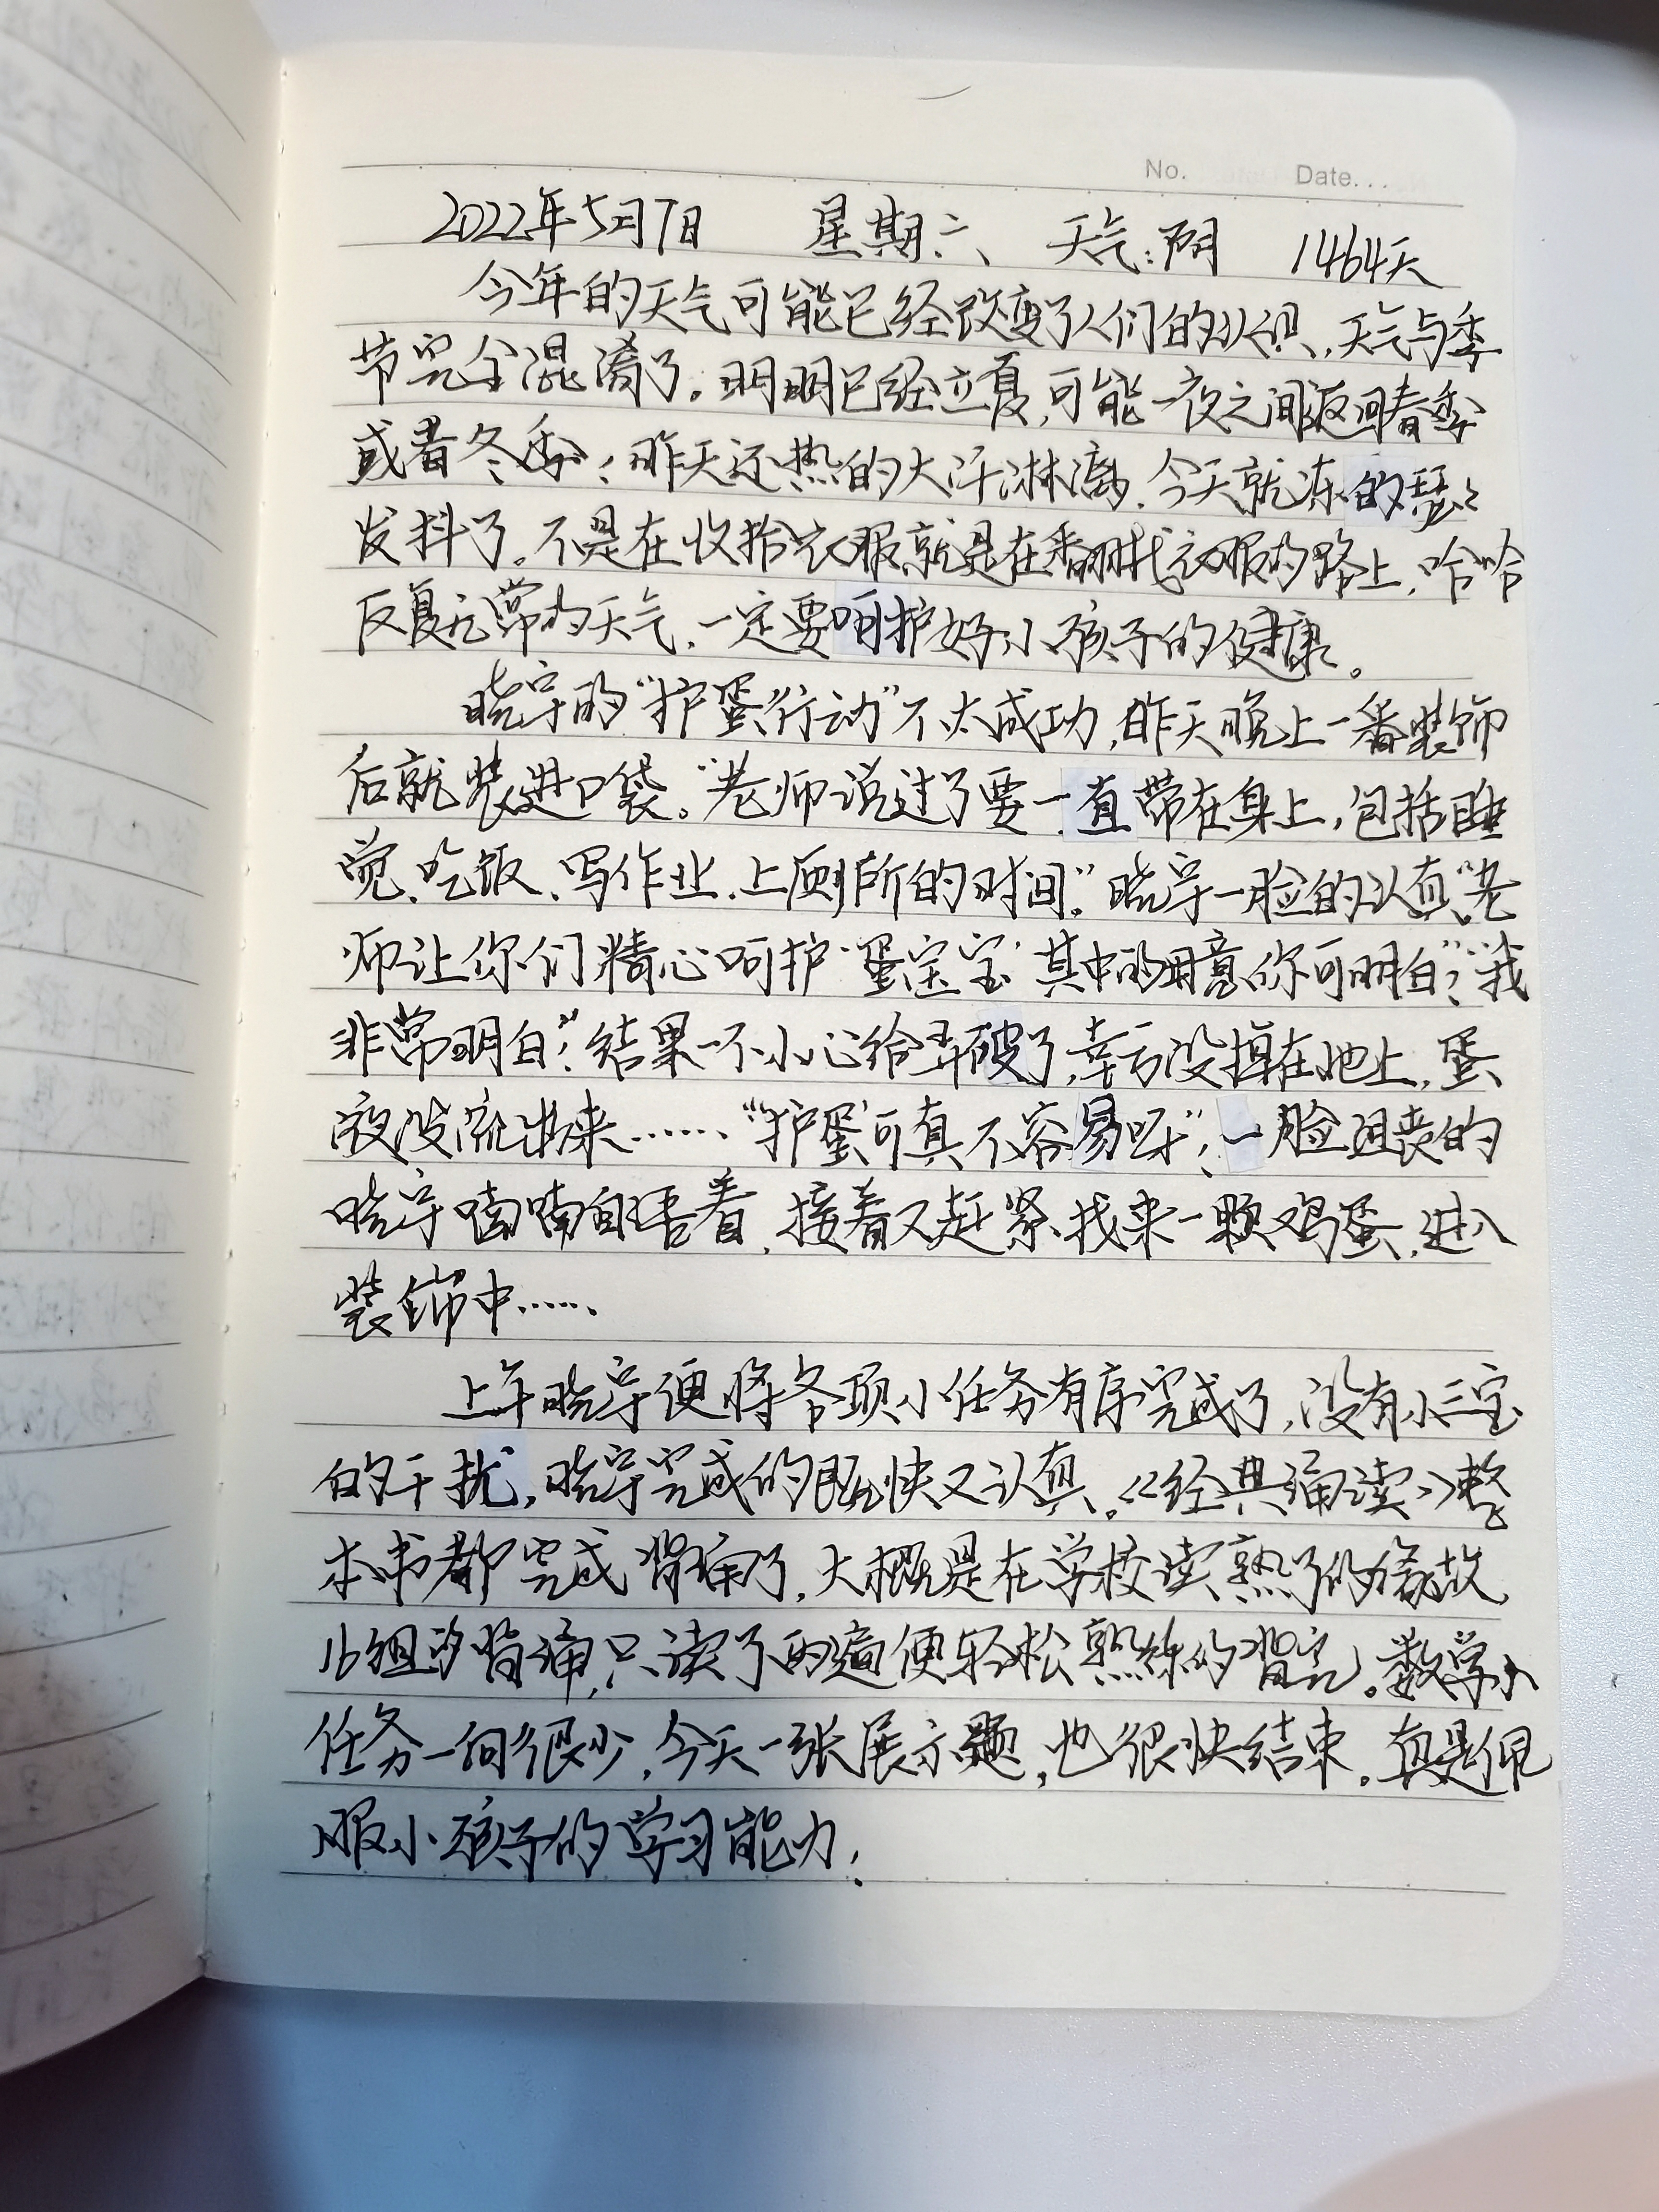 No. Date...
2022年5月7日 星期六 天气:阴 1464天
今年的天气可能已经改变了人们的认识,天气与季
节完全混淆了。明明已经立夏,可能一夜之间返回春季
或者冬季;昨天还热的大汗淋漓,今天就冻的瑟瑟
发抖了。不是在收拾衣服就是在翻找衣服的路上,哈哈
反复无常的天气,一定要呵护好小孩子的健康。
晓宇的“护蛋行动”不太成功,昨天晚上一番装饰
后就装进口袋。“老师说过了要一直带在身上,包括睡
觉、吃饭、写作业、上厕所的时间。”晓宇一脸的认真。“老
师让你们精心呵护‘蛋宝宝’其中的用意你可明白?”“我
非常明白!”结果一不小心给弄破了,幸亏没掉在地上,蛋
液没流出来……“‘护蛋’可真不容易呀”,一脸沮丧的
晓宇喃喃自语着,接着又赶紧找来一颗鸡蛋,进入
装饰中……
上午晓宇便将各项小任务有序完成了,没有小三宝
的干扰,晓宇完成的既快又认真。《经典诵读》整
本书都完成背诵了,大概是在学校读熟了的缘故,
小组的背诵,只读了两遍便轻松熟练的背完。数学小
任务一向很少,今天一张展示题,也很快结束。真是佩
服小孩子的学习能力!